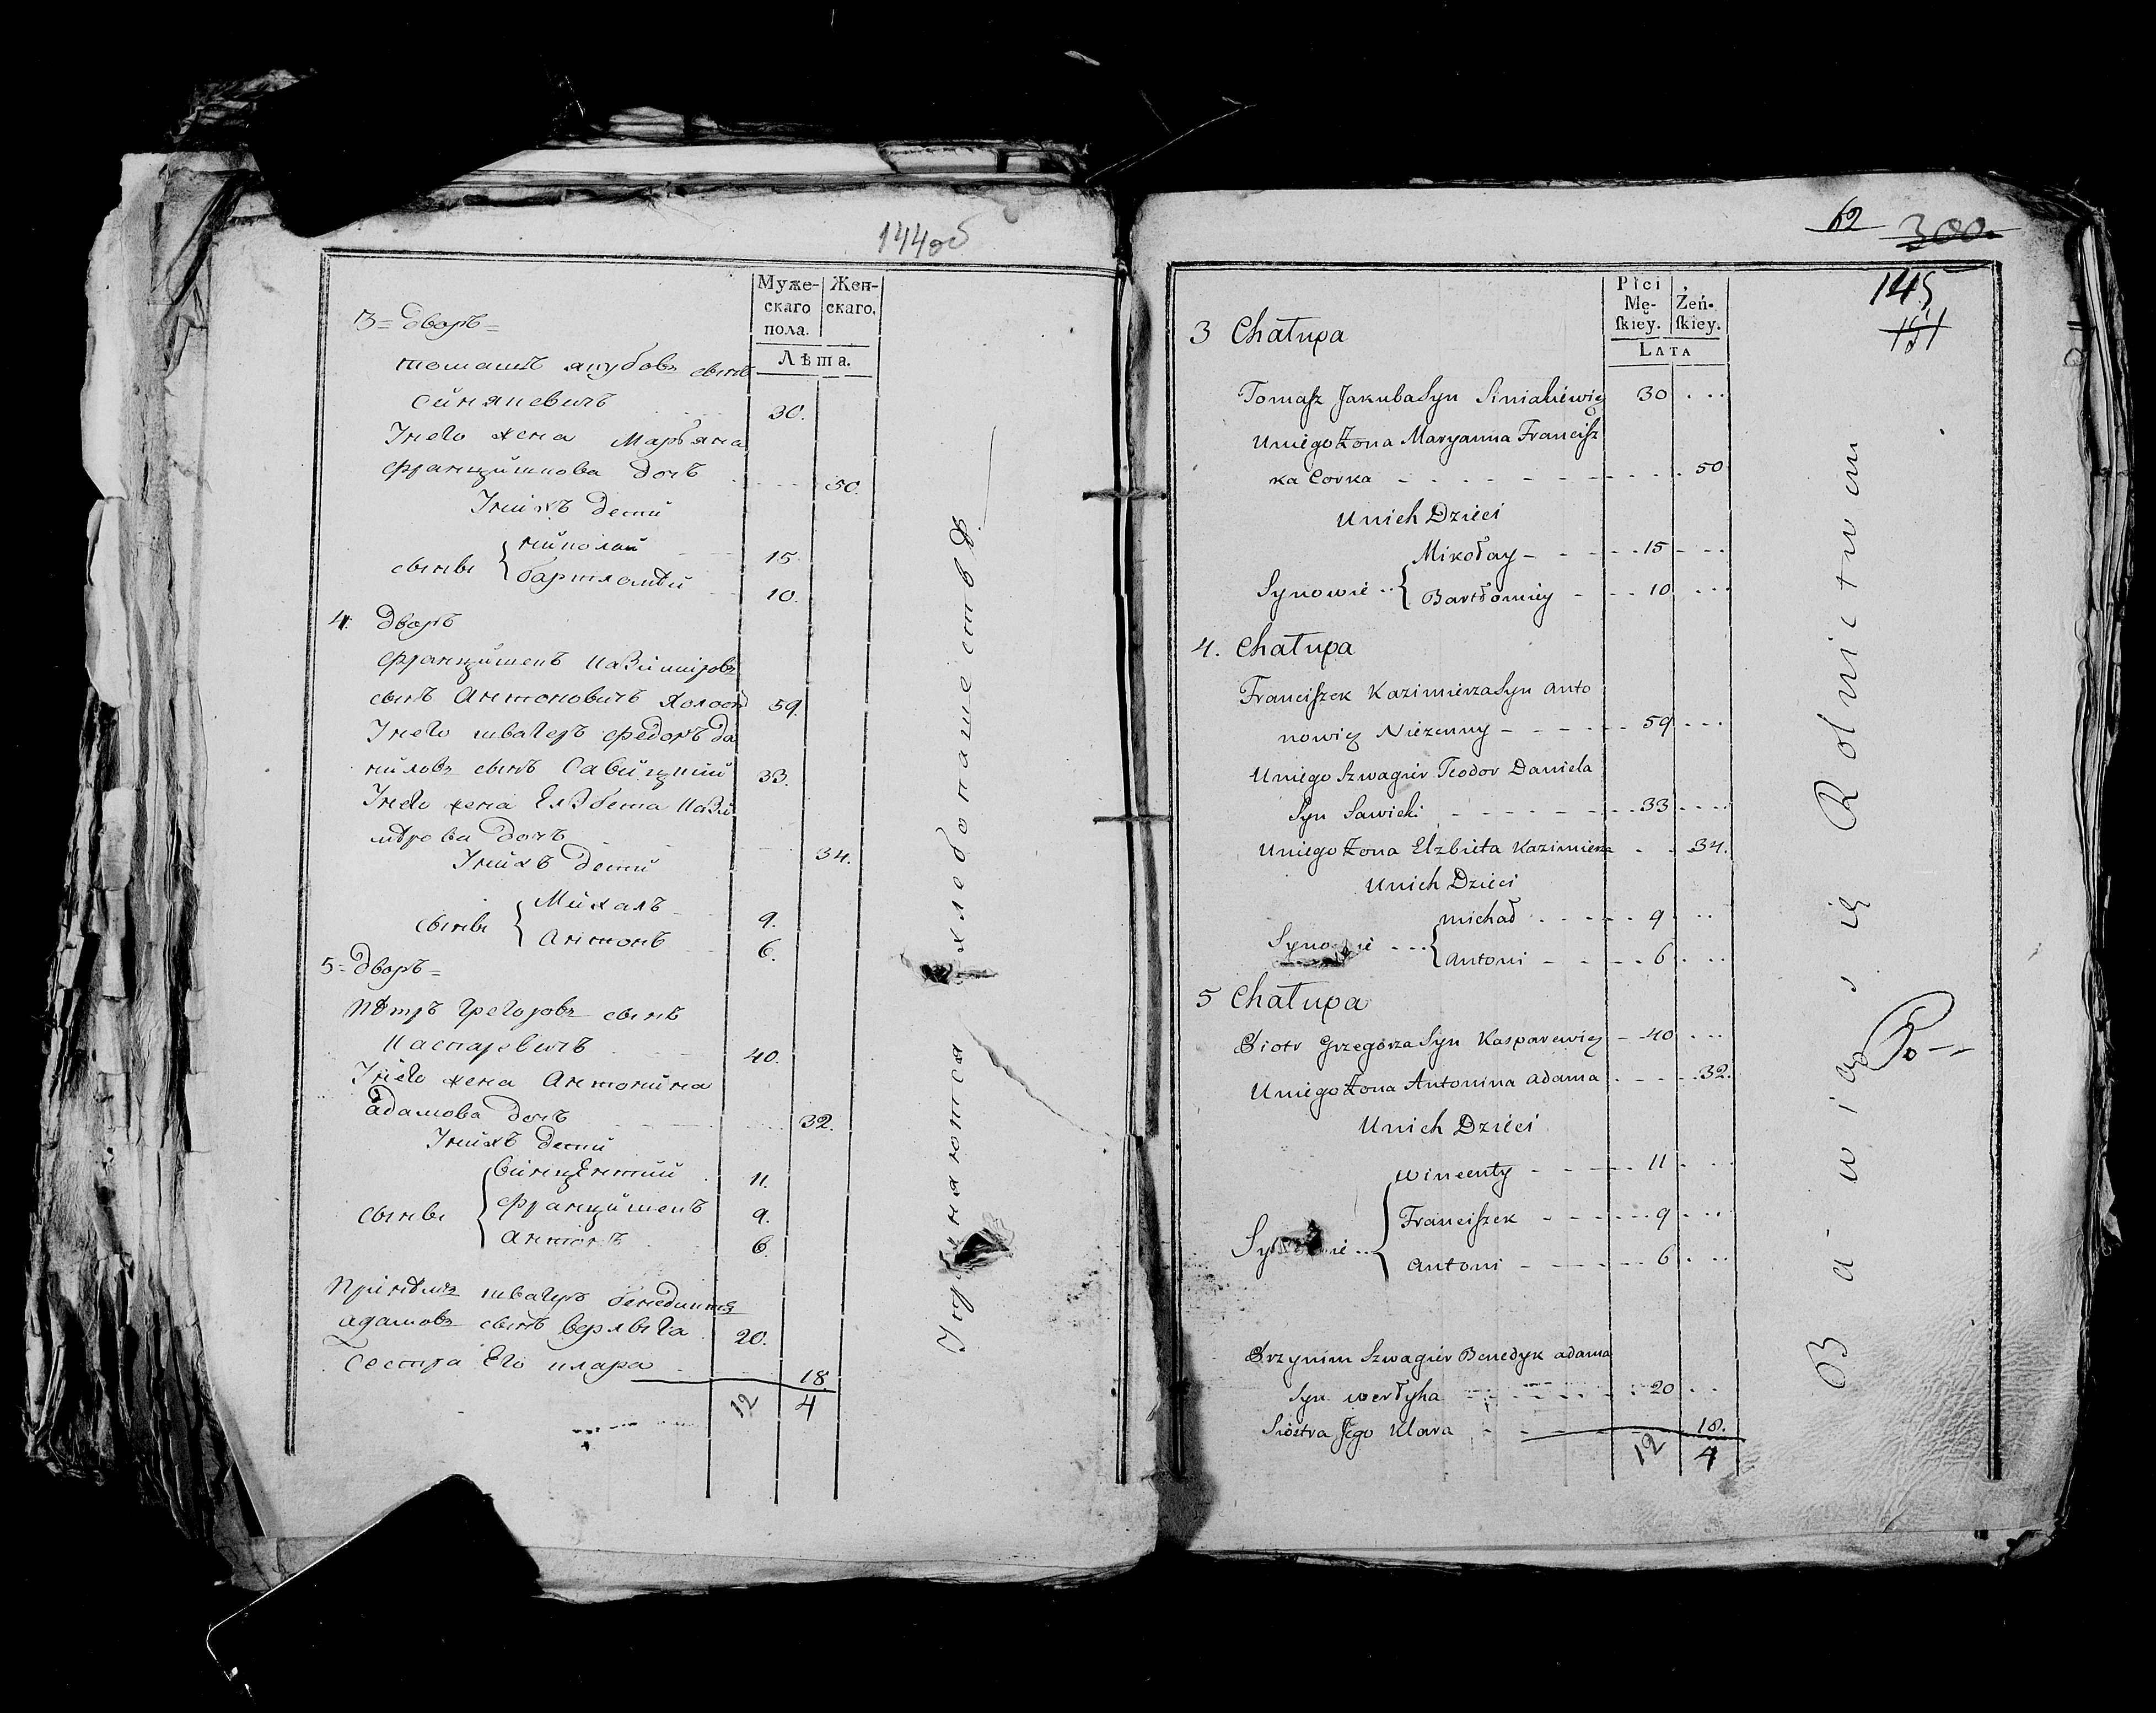 144об
Муже-
скаго
пола.
Жен-
скаго.
Лѣта.
3 = дворъ =
томашъ якубовъ сынъ
синякевичъ 30.
У него жена Марьяна
францишкова дочь 50.
У нихъ дети
сынве { миколай 15
бартломѣй 10.
4. дворъ
францишекъ казимировъ
сынъ антоновичъ холост 59.
У него швагеръ федоръ да
ниловъ сынъ Савицкий 33.
У него жена Елзбета кази
мѣрова дочь 34.
У нихъ дети
сынве { Михалъ 9.
антонъ 6.
5 = дворъ =
Пѣтръ грегоровъ сынъ
каспаревичъ 40.
У него жена Антонина
адамова дочь 32.
У нихъ дети
сынве { винцентий 11.
францишекъ 9.
антонъ 6.
При нѣмъ швагеръ бенедиктъ
адамовъ сынъ верлыга 20.
Сестра Его клара 18.
12 4
хлебопашествѣ
62 300
145
151
Płci
Mę-
ſkiey.
Żeń-
ſkiey.
Lata
3 Chałupa
Tomaſz Jakuba Syn Siniakiewicz 30
U niego Żona Maryanna Francisz
ka Corka 50
U nich Dzieci
Synowie { Mikołay 15
Bartłomiey 10
4. Chałupa
Franciſzek Kazimierza Syn Anto
nowicz Nieżenny 59
U niego Szwagier Teodor Daniela
Syn Sawicki 33
U niego Żona Elzbieta Kazimierza 34.
U nich Dzieci
Synowie { michał 9
Antoni 6
5 Chałupa
Piotr Grzegorza Syn Kasparewicz 40
U niego Żona Antonina Adama 32.
U nich Dzieci
Synowie { Wincenty 11
Franciſzek 9
Antoni 6
Przynim Szwagier Benedyk adama
Syn werłyha 20
Siostra Jego Klara 18.
12 4
Bawią się Rolnictwem